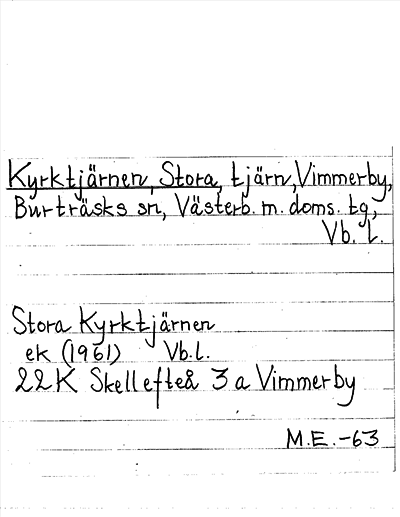 Kyrktjärnen, Stora, tjärn, Vimmerby,
Burträsks sn, Västerb. m. doms. tg,
Vb. l.
Stora Kyrktjärnen
ek (1961) Vb.l.
22K Skellefteå 3 a Vimmerby
M.E.-63